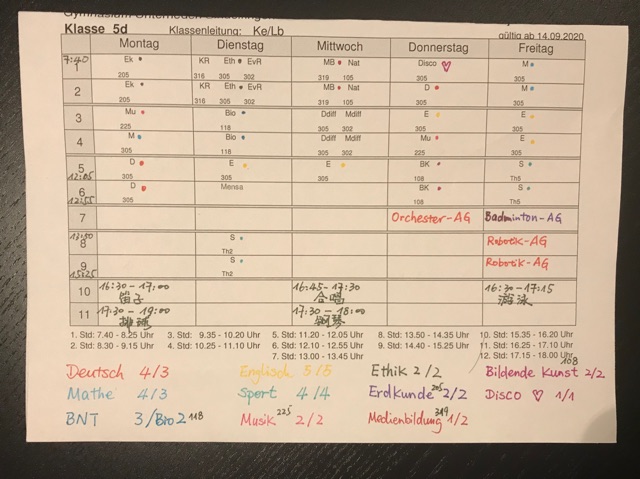 Klasse 5d Klassenleitung: Ke/Lb gültig ab 14.09.2020
Montag Dienstag Mittwoch Donnerstag Freitag
7:40
1 Ek KR Eth EvR MB Nat Disco ♡ M
205 316 305 302 319 105 305 305
2 Ek KR Eth EvR MB Nat D M
205 316 305 302 319 105 305 305
3 Mu Bio Ddiff Mdiff E E
225 118 305 302 305 305
4 M Bio Ddiff Mdiff Mu E
305 118 305 302 225 305
5 D E E BK S
12:05 305 305 305 108 Th5
6 D Mensa BK S
12:55 305 108 Th5
7 Orchester-AG Badminton-AG
13:50
8 S Robotik-AG
Th2
9 S Robotik-AG
15:25 Th2
10 16:30-17:00 16:45-17:30 16:30-17:15
笛子 合唱 游泳
11 17:30-19:00 17:30-18:00
排球 钢琴
1. Std: 7.40 - 8.25 Uhr 3. Std: 9.35 - 10.20 Uhr 5. Std: 11.20 - 12.05 Uhr 8. Std: 13.50 - 14.35 Uhr 10. Std: 15.35 - 16.20 Uhr
2. Std: 8.30 - 9.15 Uhr 4. Std: 10.25 - 11.10 Uhr 6. Std: 12.10 - 12.55 Uhr 9. Std: 14.40 - 15.25 Uhr 11. Std: 16.25 - 17.10 Uhr
7. Std: 13.00 - 13.45 Uhr 12. Std: 17.15 - 18.00 Uhr
Deutsch 4/3 Englisch 5/5 Ethik 2/2 Bildende Kunst 108 2/2
Mathe 4/3 Sport 4/4 Erdkunde 205 2/2 Disco ♡ 1/1
BNT 3/Bio2 118 Musik 225 2/2 Medienbildung 319 1/2